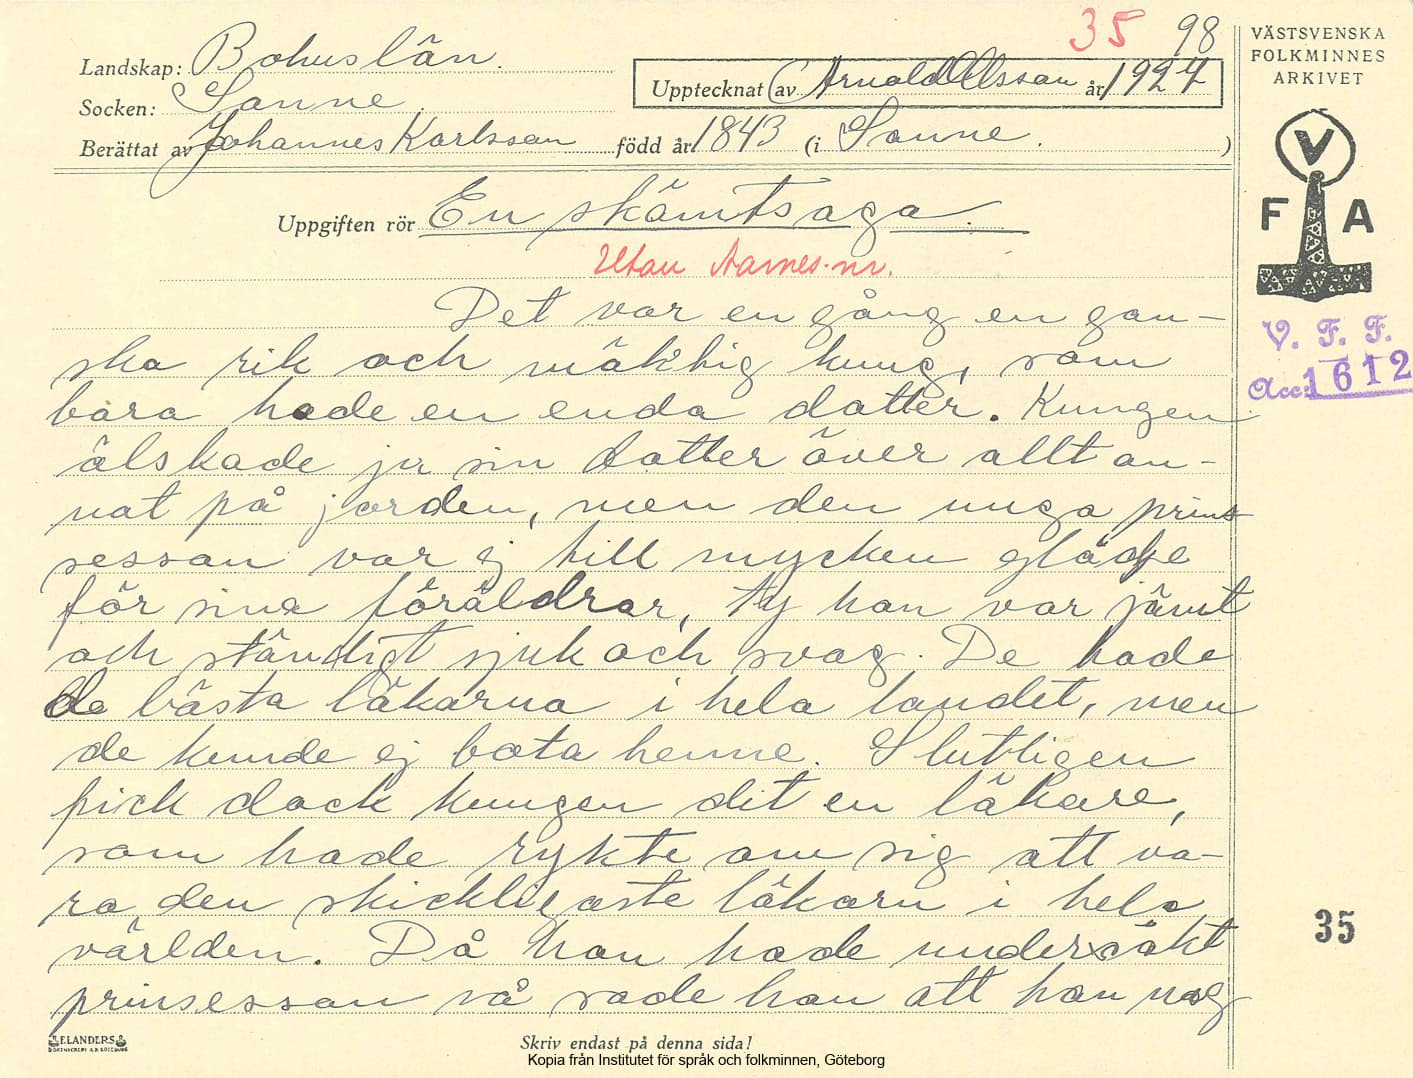 35 98
Landskap: Bohuslän.
Upptecknat av Arnold Olsson år 1924
Socken: Sanne.
Berättat av Johannes Karlsson född år 1843 (i Sanne. )
VÄSTSVENSKA
FOLKMINNES
ARKIVET
V
F A
V. F. F.
Acc: 1612
Uppgiften rör En skämtsaga.
Utan Aarnes-nr.
Det var en gång en gan-
ska rik och mäktig kung, som
bara hade en enda datter. Kungen
älskade ju sin datter över allt an-
nat på jorden, men den unga prins
sessan var ej till mycken glädje
för sina föräldrar, ty hon var jämt
och ständigt sjuk och svag. De hade
de bästa läkarna i hela landet, men
de kunde ej bota henne. Slutligen
fick dock kungen dit en läkare,
som hade rykte om sig att va-
ra den skickligaste läkarn i hela
världen. Då han hade undersökt
prinsessan så sade han att han nog
35
ELANDERS
BOKTRYCKERI A.B. GÖTEBORG
Skriv endast på denna sida!
Kopia från Institutet för språk och folkminnen, Göteborg